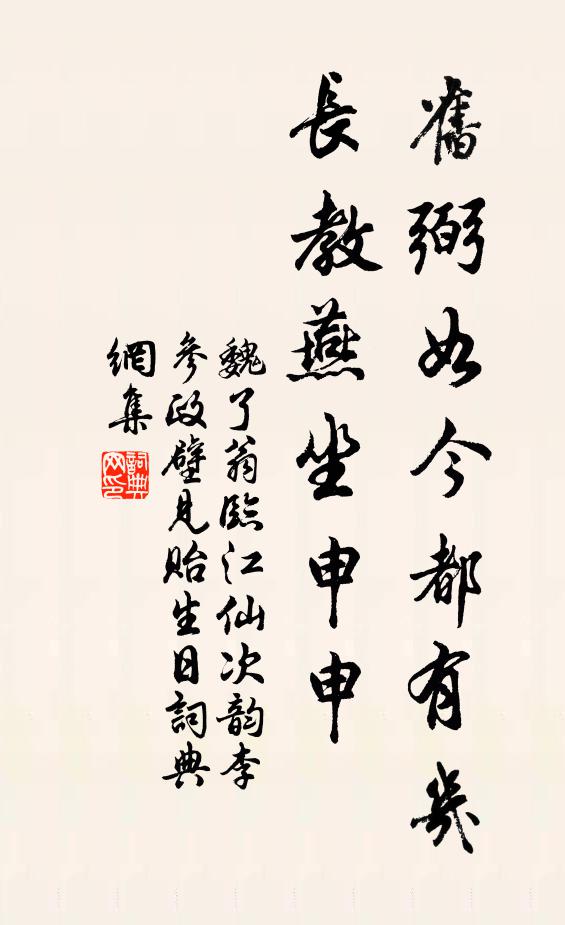 舊弼如今都有幾
長教燕坐申申
魏了翁臨江仙次韵李
參政壁見貽生日詞典
網集
詞典網印